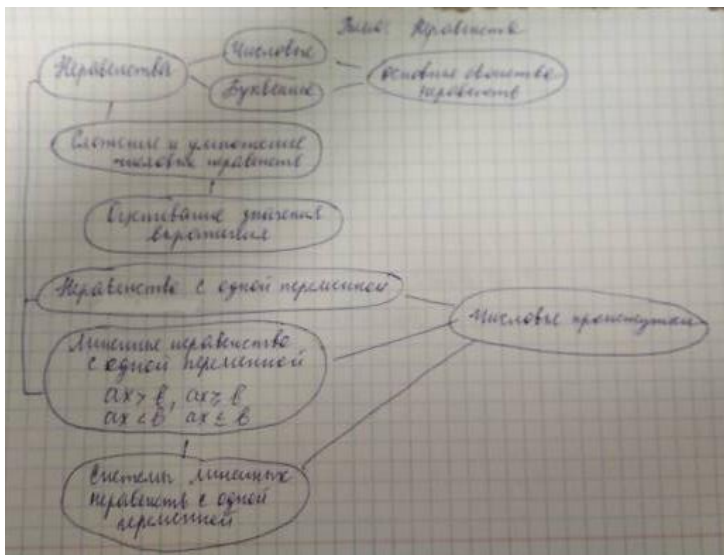 Тема: Неравенств
Неравенства
Числовые
Буквенные
основные свойства
неравенств
Сложение и умножение
числовых неравенств
Оценивание значения
выражения
Неравенство с одной переменной
Числовые промежутки
Линейные неравенство
с одной переменной
ax > b, ax ≥ b
ax < b, ax ≤ b
Системы линейных
неравенств с одной
переменной